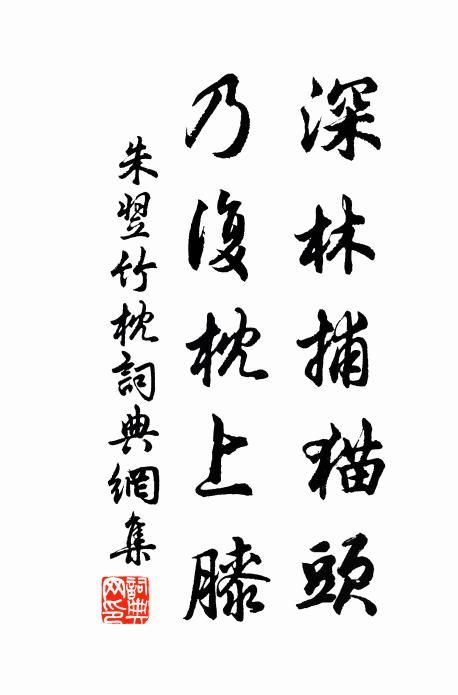 深林捕猫頭
乃復枕上膝
朱翌竹枕詞典網集
詞典網印